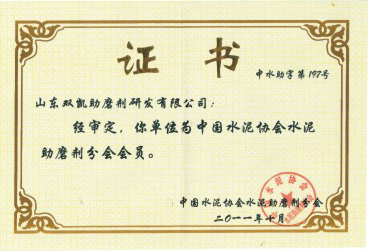 证书
中水助字第197号
山东双凯助磨剂研发有限公司：
经审定，你单位为中国水泥协会水泥
助磨剂分会会员。
中国水泥协会水泥助磨剂分会
二〇一一年七月